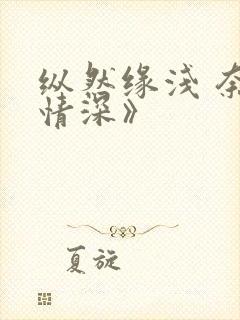 纵然缘浅 奈
情深》
夏旋